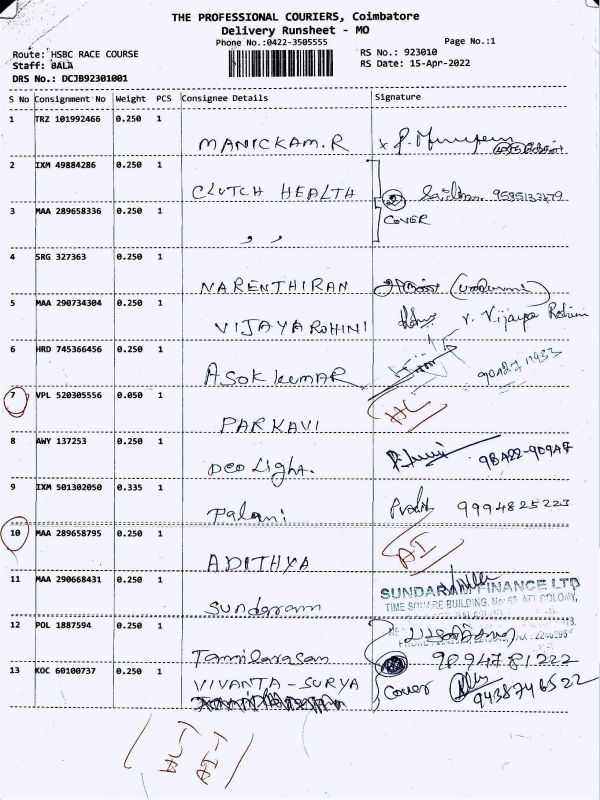 THE PROFESSIONAL COURIERS, Coimbatore
Delivery Runsheet - MO
Phone No.:0422-3505555
Page No.:1
Route: HSBC RACE COURSE
RS No.: 923010
Staff: BALA
RS Date: 15-Apr-2022
DRS No.: DCJB92301001
S No Consignment No Weight PCS Consignee Details Signature
1 TRZ 101992466 0.250 1
MANICKAM.R
2 IXM 49884286 0.250 1
CLUTCH HEALTH 2
3 MAA 289658336 0.250 1
COVER
,, 
4 SRG 327363 0.250 1
NARENTHIRAN
5 MAA 290734304 0.250 1
VIJAYAROHINI r. Vijaya Rohini
6 HRD 745366456 0.250 1
ASOKKUMAR
7 VPL 520305556 0.050 1
PARKAVI HC
8 AWY 137253 0.250 1
DEO Light.
9 IXM 501302050 0.335 1
Palani 9994825223
10 MAA 289658795 0.250 1
ADITHYA AI
11 MAA 290668431 0.250 1
Sunderam
SUNDARAM FINANCE LTD
TIME SQUARE BUILDING, COLONY,
12 POL 1887594 0.250 1
Tamilarasan 9094781222
13 KOC 60100737 0.250 1
VIVANTA - SURYA Cover 9438746522
HC-1
AI-1